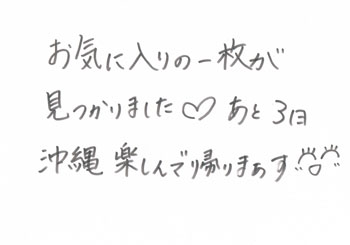 お気に入りの一枚が
見つかりました♡ あと3日
沖縄 楽しんで帰りまぁす